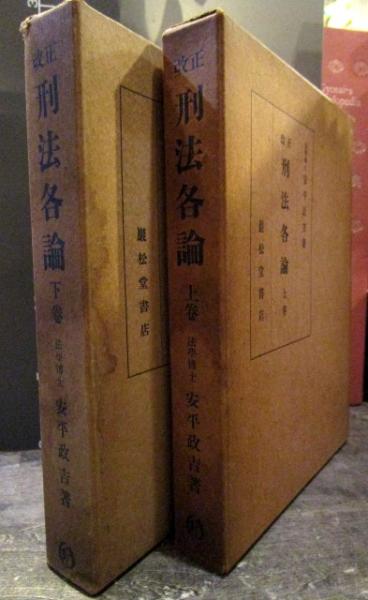 改正
刑法各論
下卷
法學博士
安平政吉著
巖松堂書店
改正
刑法各論
上卷
法學博士
安平政吉著
改正
刑法各論
上卷
巖松堂書店